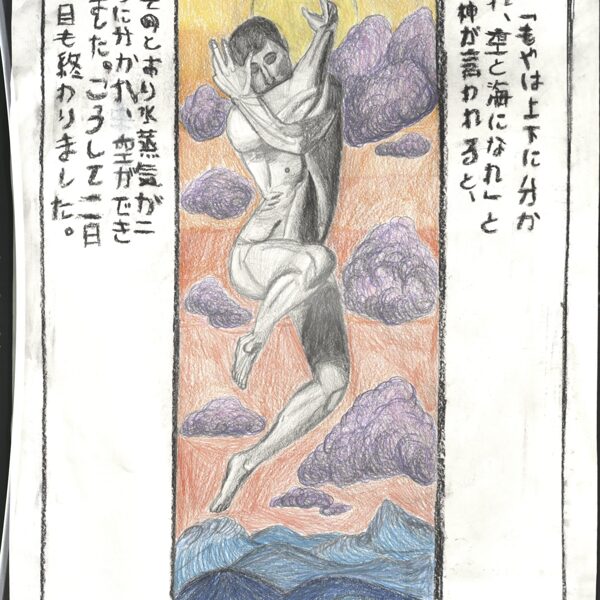 「もやは上下に分か
れ、空と海になれ」と
神が言われると、
そのとおり水蒸気が二
に分かれ、空ができ
ました。こうして二日
目も終わりました。